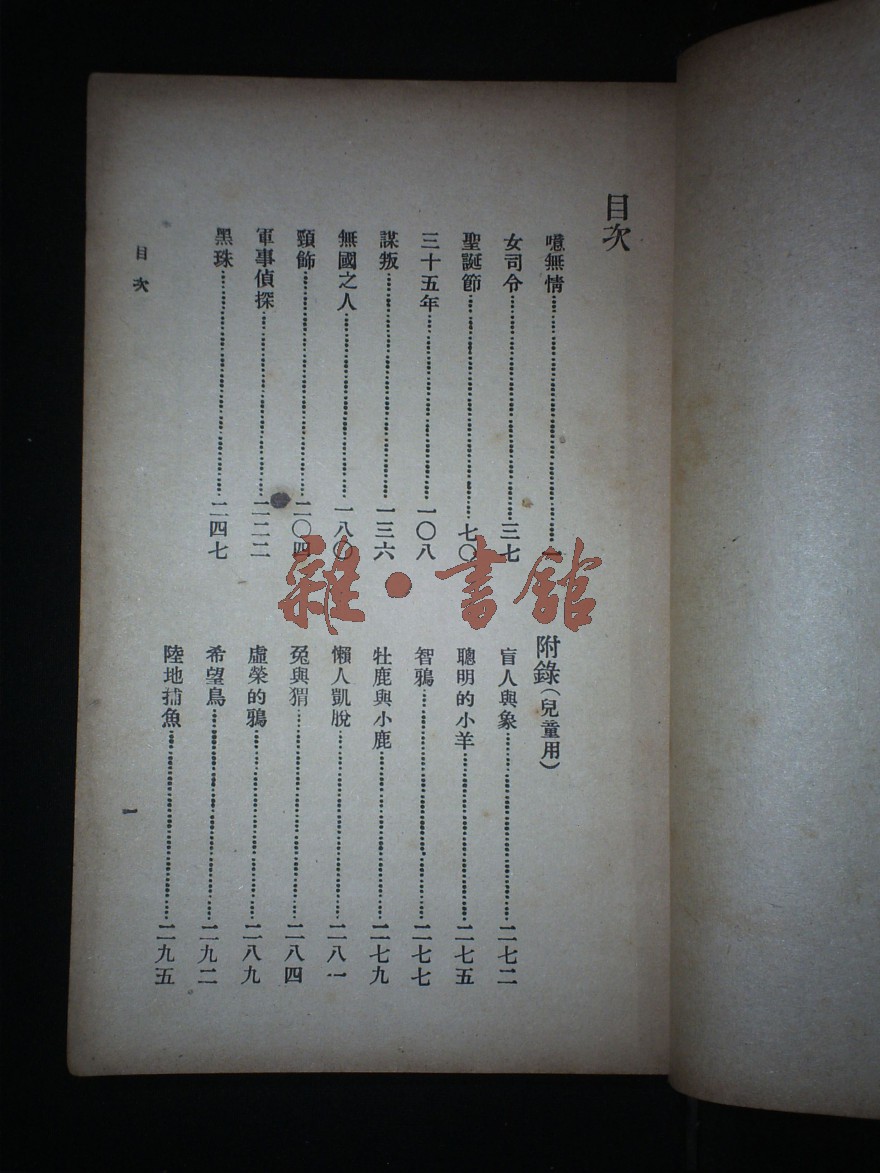 目次
噫無情……一
女司令……三七
聖誕節……七〇
三十五年……一〇八
謀叛……一三六
無國之人……一八〇
頸飾……二〇四
軍事偵探……二二二
黑珠……二四七
附錄（兒童用）
盲人與象……二七二
聰明的小羊……二七五
智鴉……二七七
牡鹿與小鹿……二七九
懶人凱脫……二八一
兔與猬……二八四
虛榮的鴉……二八九
希望鳥……二九二
陸地捕魚……二九五
目次
一
雜·書館